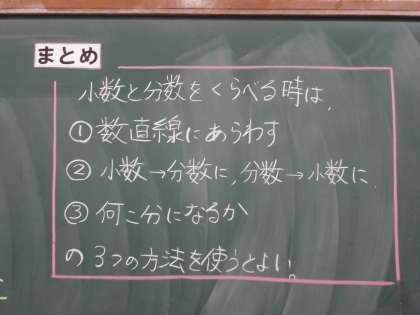 まとめ
小数と分数をくらべる時は、
①数直線にあらわす
②小数→分数に、分数→小数に
③何こ分になるか
の3つの方法を使うとよい。